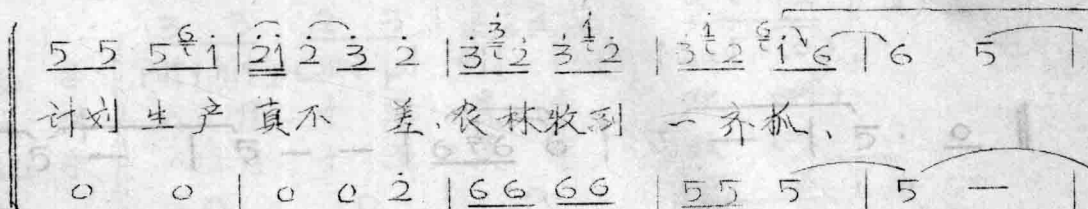 5 5 5 6 i | 2̇ i 2̇ 3̇ 2̇ | 3̇ 3̇ 2̇ 3̇ i 2̇ | 3̇ i 2̇ 6 i 6 | 6 5 |
计划生产真不差.农林收到一齐抓、
0 0 | 0 0 2̇ | 6 6 6 6 | 5 5 5 | 5 — |